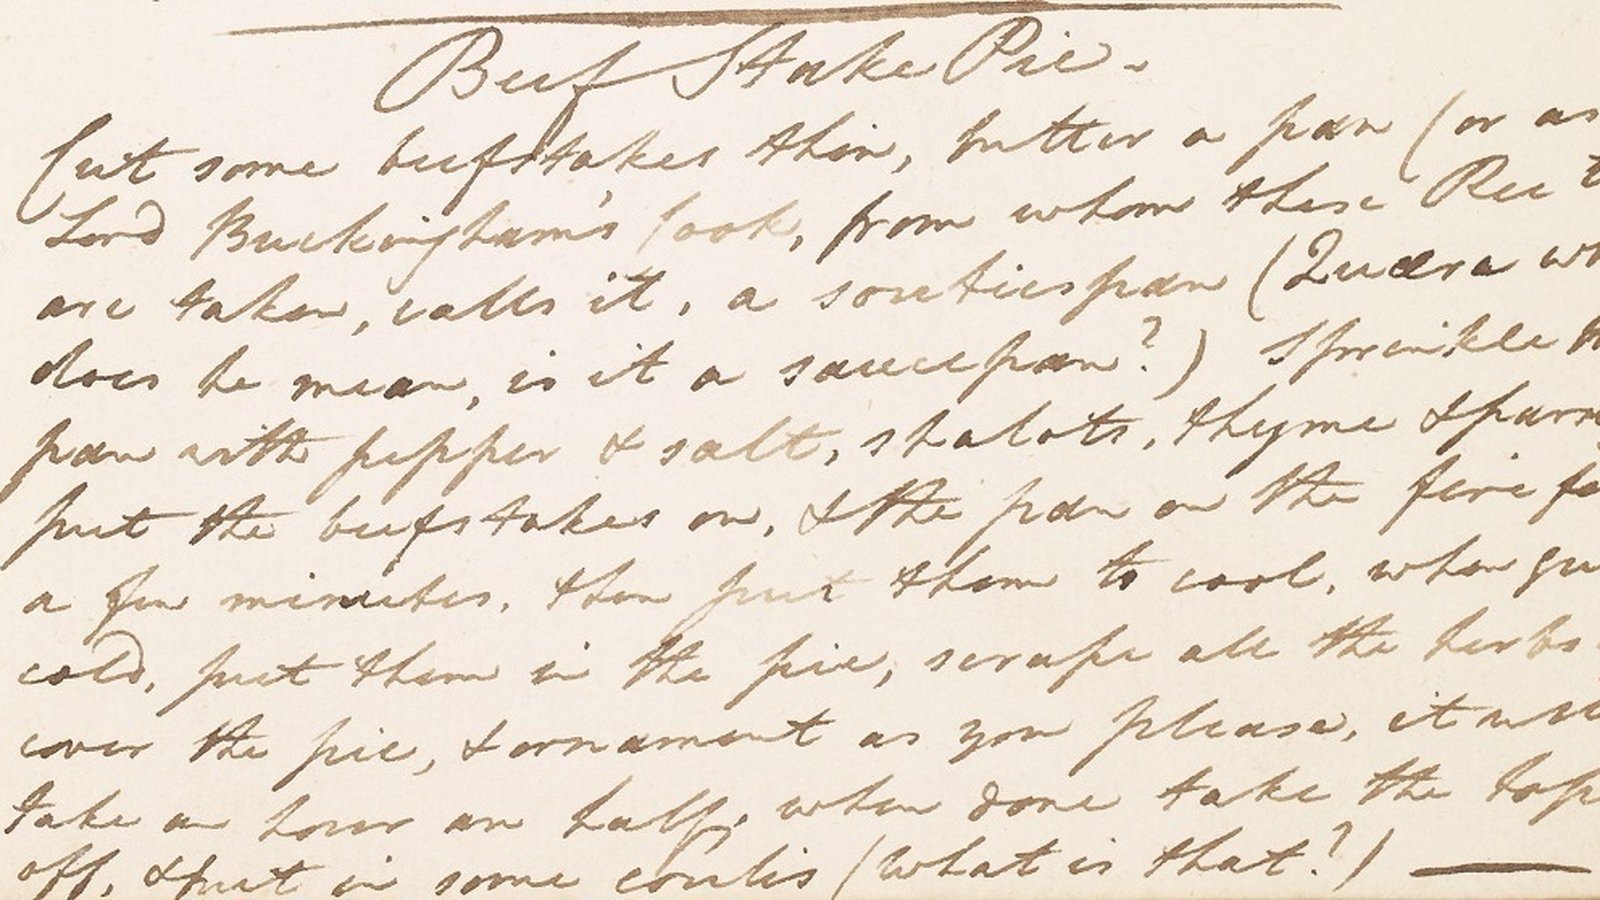 Beef Stake Pie.
Cut some beefstakes thin, butter a pan (or as
Lord Buckingham's Cook, from whom these Rects
are taken, calls it, a soutiespan (Quæra wh
does he mean, is it a saucepan?) Sprinkle th
pan with pepper & salt, shalots, thyme & pars
put the beefstakes on, & the pan on the fire fo
a few minutes, then put them to cool, when qu
cold, put them in the pie, scrape all the herbs
cover the pie, & ornament as you please, it will
take an hour an half, when done take the top
off, & put in some coulis (what is that?)